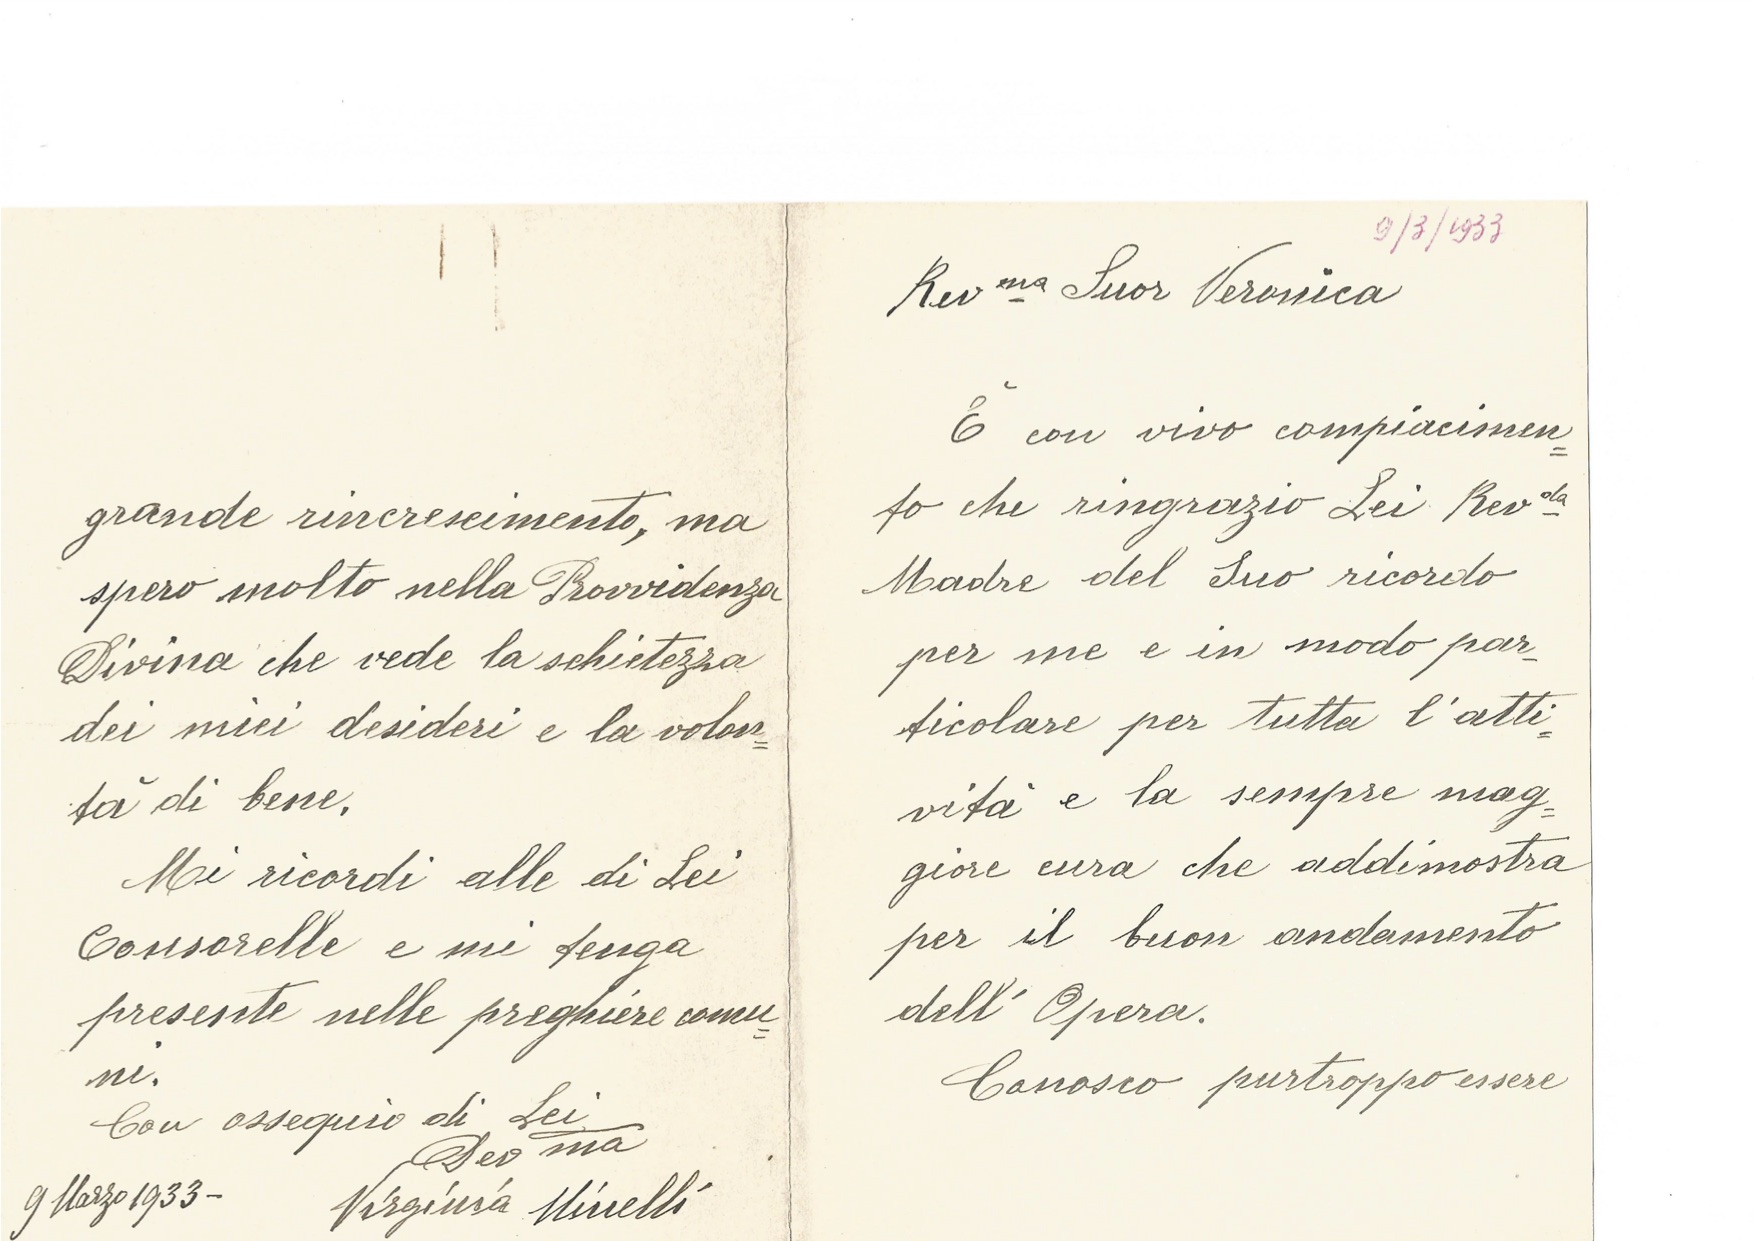 9/3/1933
Rev ma Suor Veronica
È con vivo compiacimen=
to che ringrazio Lei Rev da
Madre del Suo ricordo
per me e in modo par-
ticolare per tutta l'atti=
vità e la sempre mag=
giore cura che addimostra
per il buon andamento
dell'Opera.
Conosco purtroppo essere
grande rincrescimento, ma
spero molto nella Provvidenza
Divina che vede la schietezza
dei miei desideri e la volon=
tà di bene.
Mi ricordi alle di Lei
Consorelle e mi tenga
presente nelle preghiere comu=
ni.
Con ossequio di Lei
Dev ma
Virginia Minelli
9 Marzo 1933-